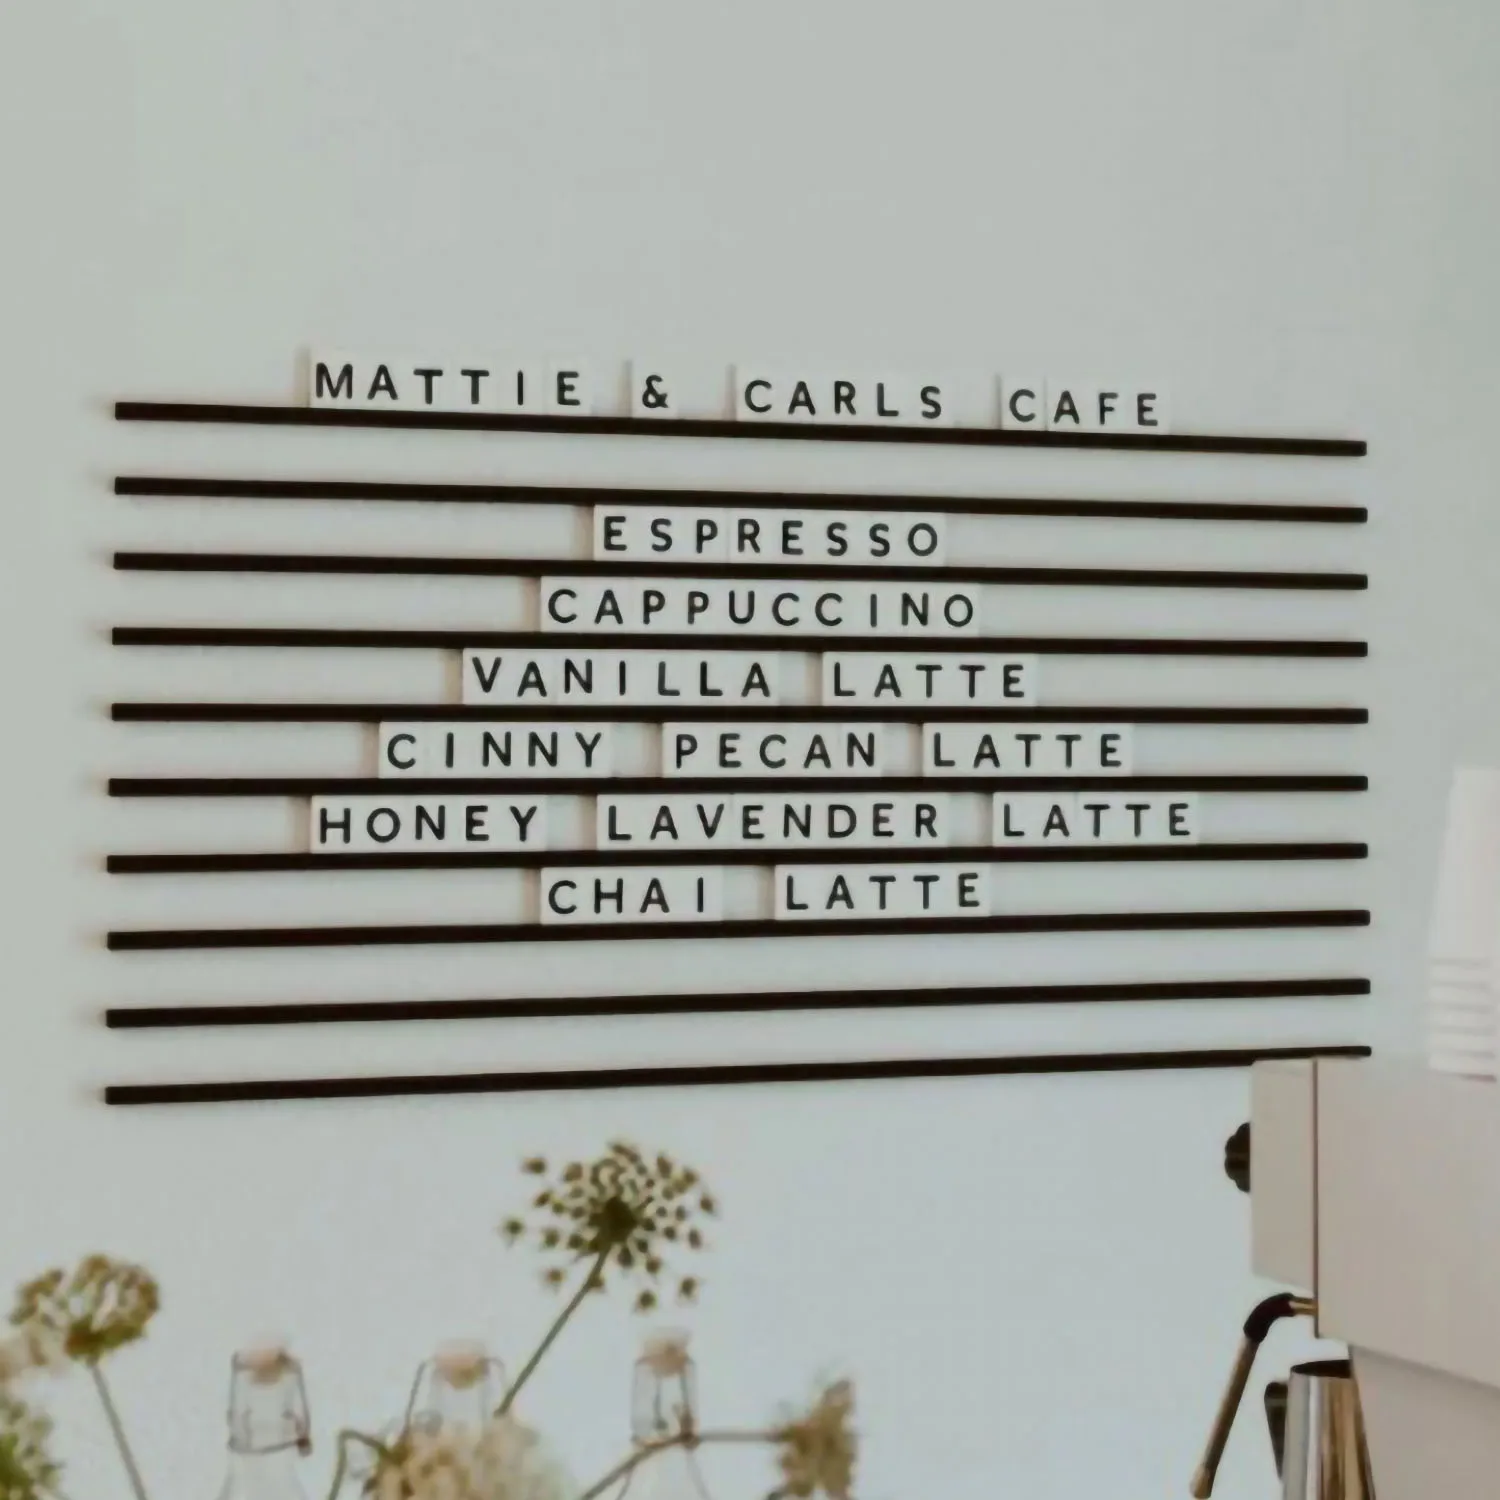 MATTIE & CARLS CAFE
ESPRESSO
CAPPUCCINO
VANILLA LATTE
CINNY PECAN LATTE
HONEY LAVENDER LATTE
CHAI LATTE